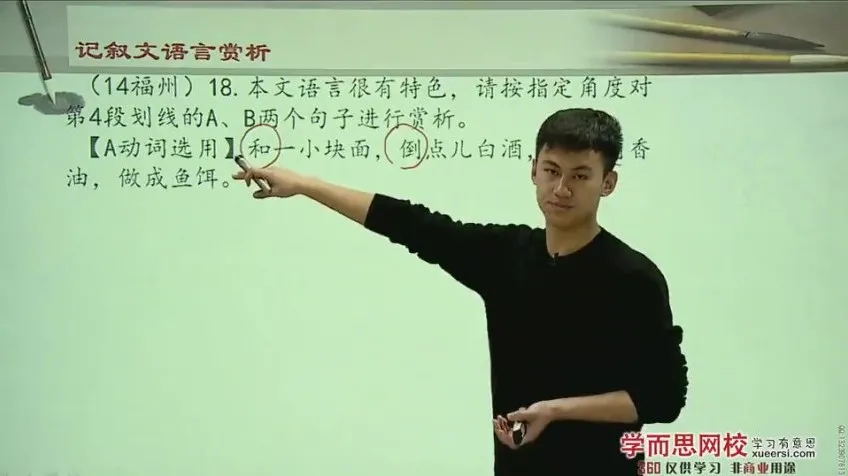 记叙文语言赏析
（14福州）18.本文语言很有特色，请按指定角度对
第4段划线的A、B两个句子进行赏析。
【A动词选用】和一小块面，倒点儿白酒，香
油，做成鱼饵。
学而思网校 学习有意思
xueersi.com
360 仅供学习 非商业用途